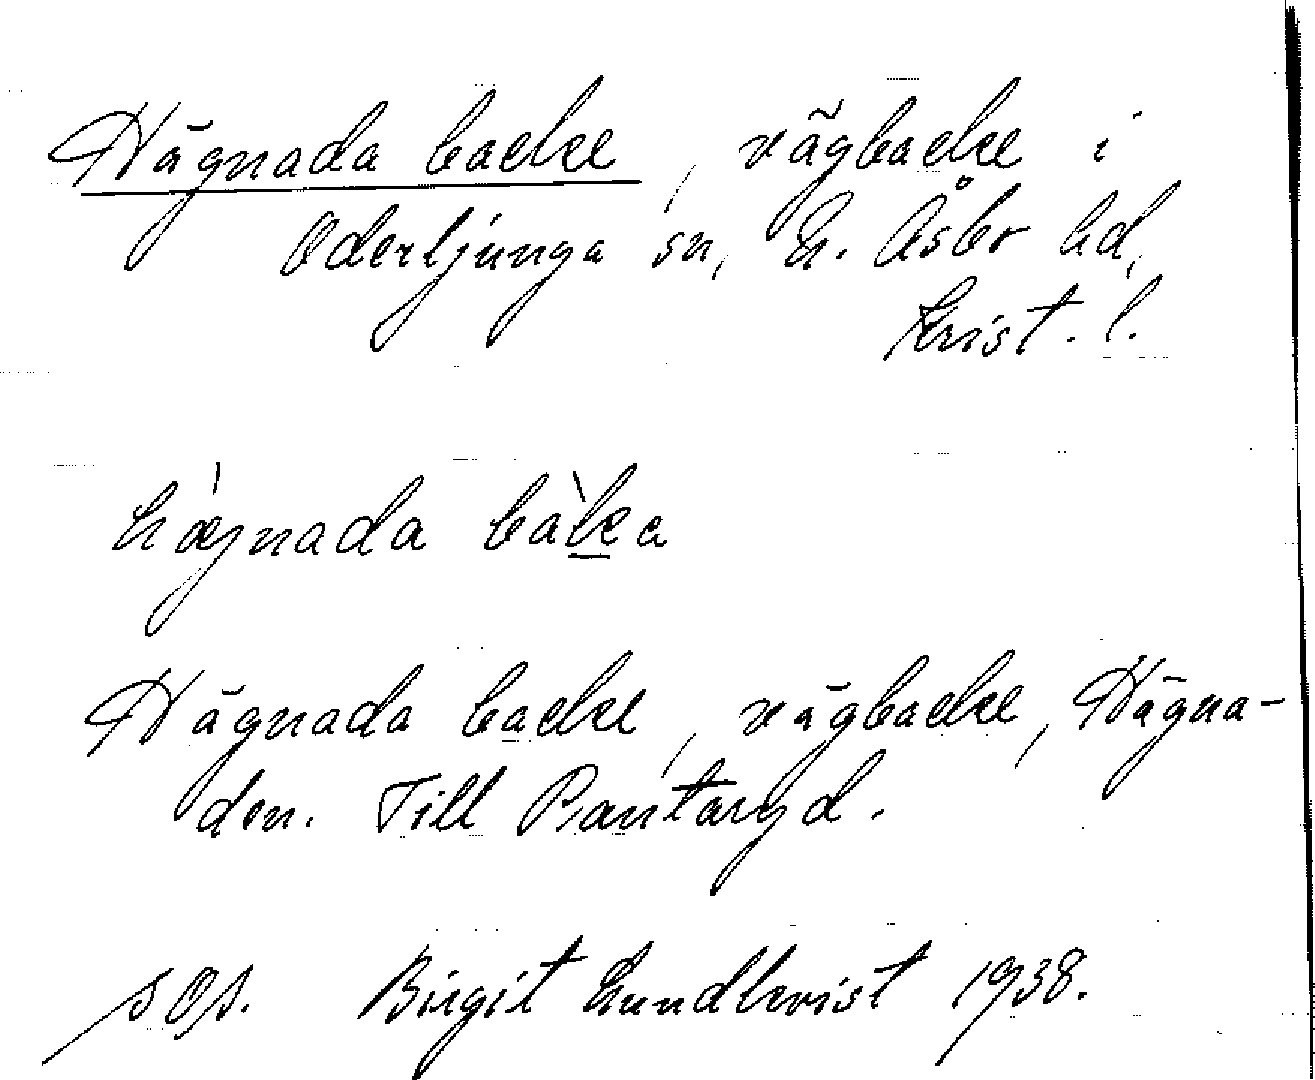 Hägnada backe, vägbacke i
Oderljunga sn, N. Åsbo hd,
Krist. l.
hæ̀gnada bàka
Hägnada backe, vägbacke, Hägna-
den. Till Pantaryd.
SOA. Birgit Lundkvist 1938.